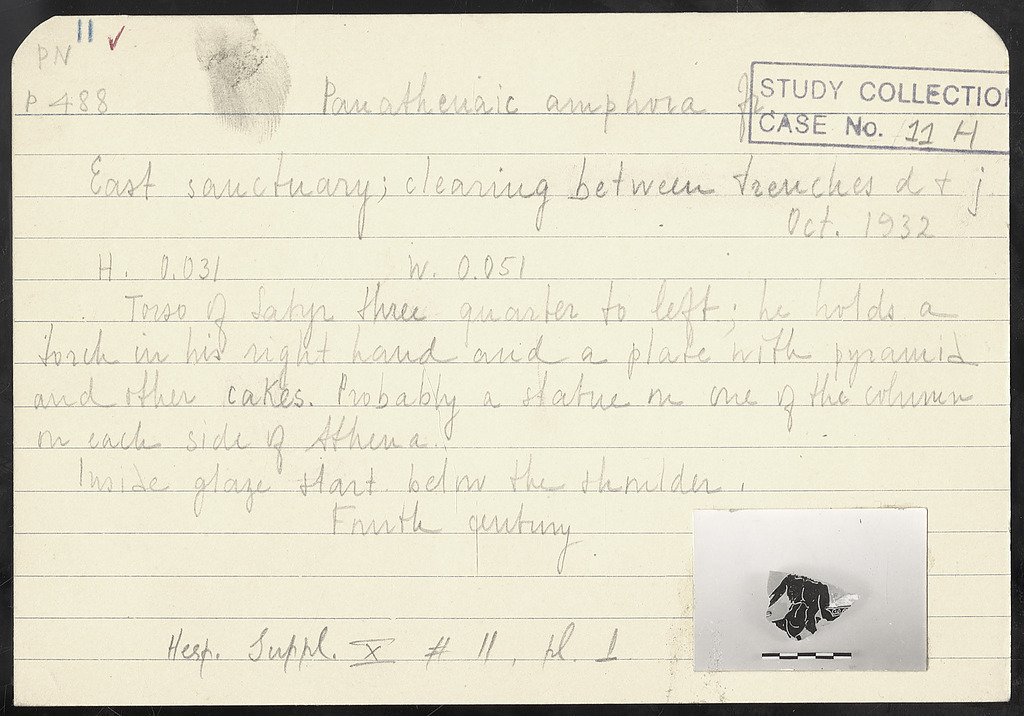 PN 11 ✓
P 488 Panathenaic amphora fr.
STUDY COLLECTION
CASE No. 11 H
East sanctuary; clearing between trenches d + j
Oct. 1932
H. 0.031 W. 0.051
Torso of Satyr three quarter to left; he holds a
torch in his right hand and a plate with pyramid
and other cakes. Probably a statue on one of the column
on each side of Athena.
Inside glaze start below the shoulder.
Fourth century
Hesp. Suppl. X # 11, pl. 1